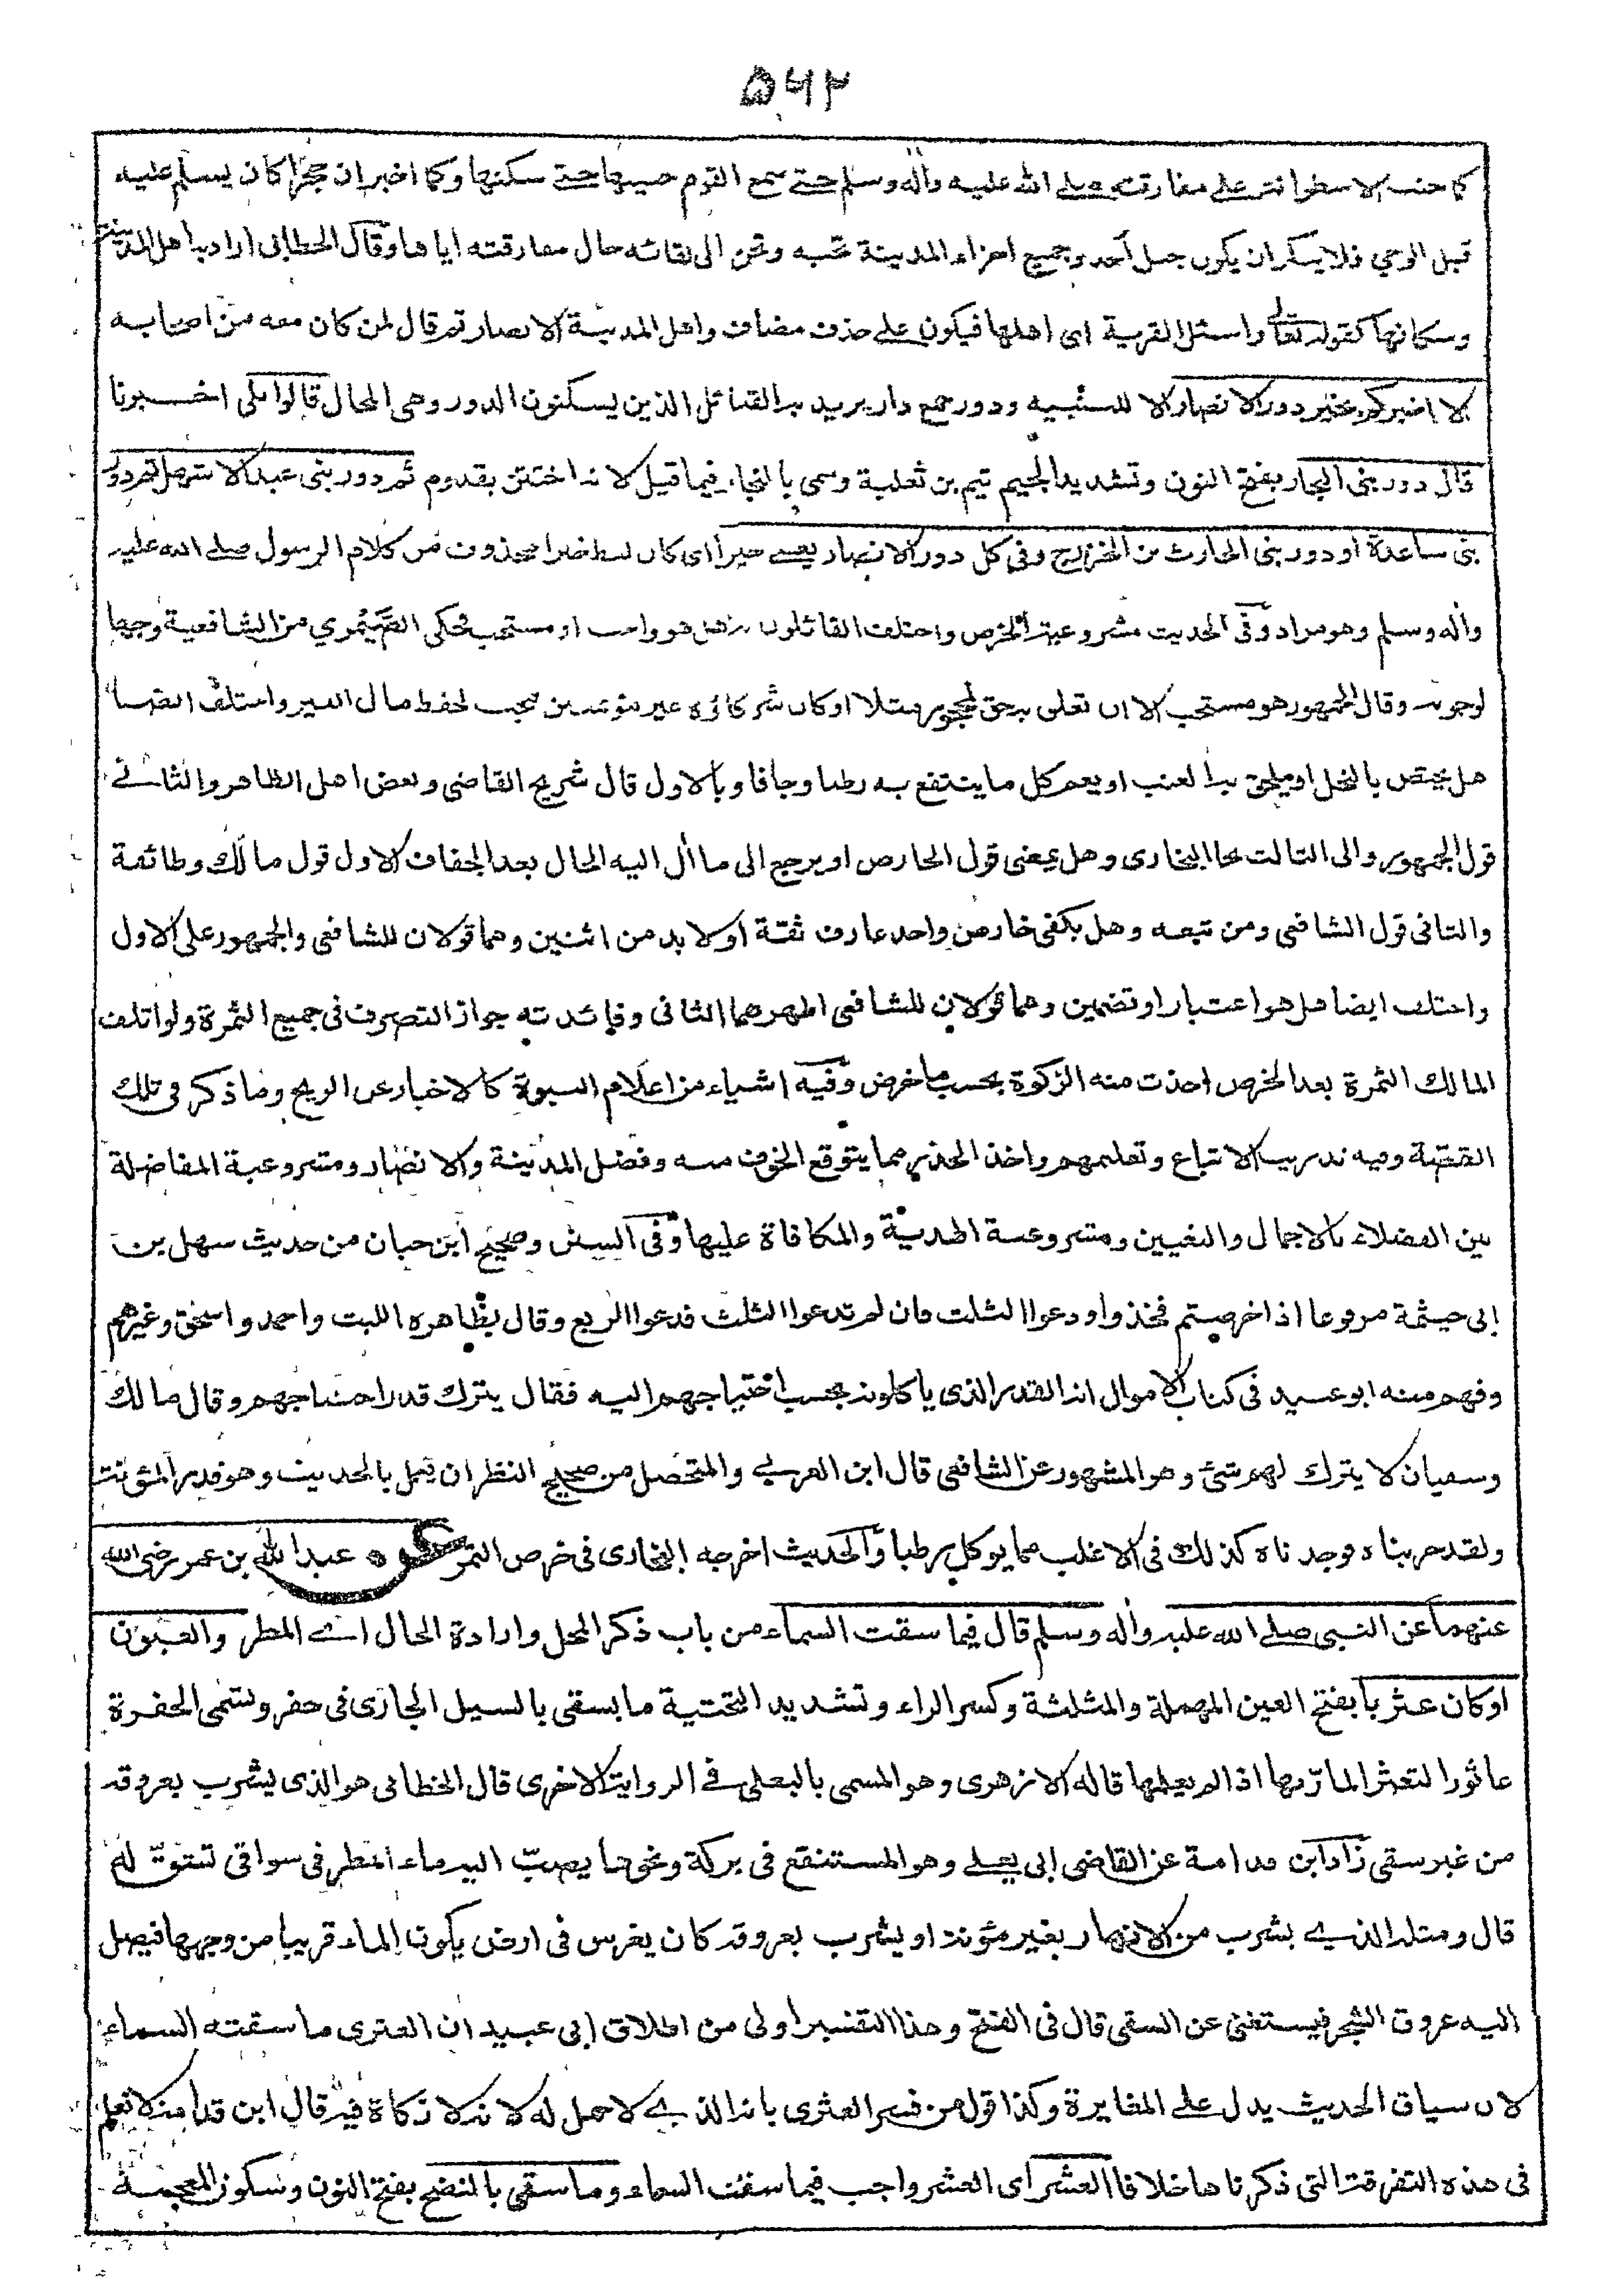 ۵۶۲
كما حنت الاسطوانة على مفارقته صلى الله عليه وأله وسلم حتى سمع القوم حنينها حتى سكنها وكما اخبر ان حجرا كان يسلم عليه
قبل الوحي فلا ينكر ان يكون جبل أحد وجميع اجزاء المدينة تحبه وتحن الى لقائه حال مفارقته اياها وقال الخطابى اراد به اهل المدينة
وسكانها كقوله تعالى واسئل القرية اى اهلها فيكون على حذف مضاف واهل المدينة الانصار ثم قال لمن كان معه من اصحابه
الا اخبركم بخير دور الانصار الا للتنبيه ودور جمع دار يريد به القبائل الذين يسكنون الدور وهى المحال قالوا بلى اخبرنا
قال دور بنى النجار بفتح النون وتشديد الجيم تيم بن ثعلبة وسمى بالنجار فيما قيل لانه اختتن بقدوم ثم دور بنى عبد الاشهل ثم دور
بنى ساعدة او دور بنى الحارث من الخزرج وفى كل دور الانصار يعنى خيرا اى كان لفظ خيرا محذوف من كلام الرسول صلى الله عليه
وأله وسلم وهو مراد وفى الحديث مشروعية الخرص واختلف القائلون به هل هو واجب او مستحب فحكى الصَّيْمري من الشافعية وجها
لوجوبه وقال الجمهور هو مستحب الا ان تعلق به حق لمحجور مثلا او كان شركاؤه غير مؤتمنين فيجب لحفظ مال الغير واختلف ايضا
هل يختص بالنخل او يلحق به العنب او يعم كل ما ينتفع به رطبا وجافا وبالاول قال شريح القاضى وبعض اهل الظاهر والثانى
قول الجمهور والى الثالث نحا البخارى وهل يمضى قول الخارص او يرجع الى ما أل اليه الحال بعد الجفاف الاول قول مالك وطائفة
والثانى قول الشافعى ومن تبعه وهل يكفى خارص واحد عارف ثقة او لا بد من اثنين وهما قولان للشافعى والجمهور على الاول
واختلف ايضا هل هو اعتبار او تضمين وهما قولان للشافعى اظهرهما الثانى وفائدته جواز التصرف فى جميع الثمرة ولو اتلف
المالك الثمرة بعد الخرص اخذت منه الزكوة بحسب ما خرص وفيه اشياء من اعلام النبوة كالاخبار عن الريح وما ذكر فى تلك
القصة وفيه تدريب الاتباع وتعليمهم واخذ الحذر مما يتوقع الخوف منه وفضل المدينة والانصار ومشروعية المفاضلة
بين الفضلاء بالاجمال والتعيين ومشروعية الهدية والمكافاة عليها وفى السنن وصحيح ابن حبان من حديث سهل بن
ابى حيثمة مرفوعا اذا خرصتم فخذوا ودعوا الثلث فان لم تدعوا الثلث فدعوا الربع وقال بظاهره الليث واحمد واسحق وغيرهم
وفهم منه ابو عبيد فى كتاب الاموال انه القدر الذى ياكلونه بحسب احتياجهم اليه فقال يترك قدر احتياجهم وقال مالك
وسفيان لا يترك لهم شئ وهو المشهور عن الشافعى قال ابن العربى والمتحصل من صحيح النظر ان يعمل بالحديث وهو قدر المؤنة
ولقد جربناه فوجدناه كذلك فى الاغلب مما يوكل رطبا والحديث اخرجه البخارى فى خرص التمر عن عبد الله بن عمر رضى الله
عنهما عن النبى صلى الله عليه وأله وسلم قال فيما سقت السماء من باب ذكر المحل وارادة الحال اى المطر والعيون
او كان عثريا بفتح العين المهملة والمثلثة وكسر الراء وتشديد التحتية ما يسقى بالسيل الجارى فى حفر وتسمى الحفرة
عاثورا لتعثر المار بها اذا لم يعلمها قاله الازهرى وهو المسمى بالبعلى فى الرواية الاخرى قال الخطابى هو الذى يشرب بعروقه
من غير سقى زاد ابن قدامة عن القاضى ابى يعلى وهو المستنقع فى بركة ونحوها يصب اليه ماء المطر فى سواقى تشق له
قال ومثله الذى يشرب من الانهار بغير مؤنة او يشرب بعروقه كان يغرس فى ارض يكون الماء قريبا من وجهها فيصل
اليه عروق الشجر فيستغنى عن السقى قال فى الفتح وهذا التفسير اولى من اطلاق ابى عبيد ان العثرى ما سقته السماء
لان سياق الحديث يدل على المغايرة وكذا قول من فسر العثرى بانه الذى لا حمل له لانه لا زكاة فيه قال ابن قدامة لا نعلم
فى هذه التفرقة التى ذكرناها خلافا العشر اى العشر واجب فيما سقت السماء وما سقى بالنضح بفتح النون وسكون المعجمة